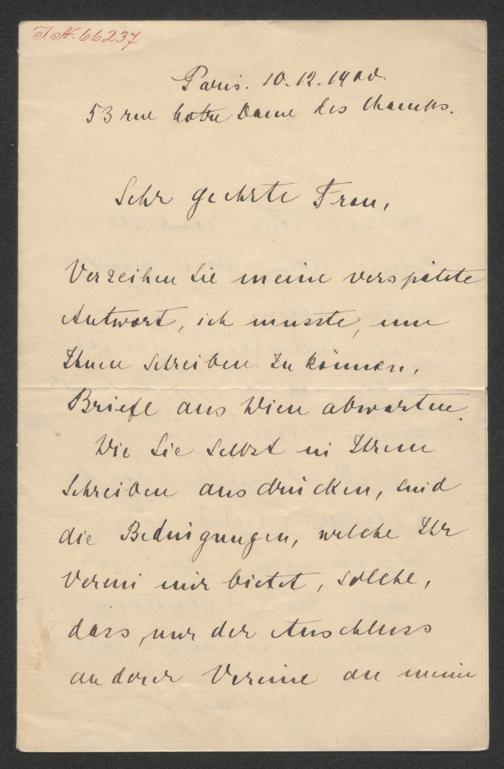 I.N. 66237
Paris. 10.12.1900.
53 rue Notre Dame des Champs.
Sehr geehrte Frau,
Verzeihen Sie meine verspätete
Antwort, ich musste, um
Ihnen schreiben zu können,
Briefe aus Wien abwarten.
Wie Sie selbst in Ihrem
Schreiben ausdrücken, sind
die Bedingungen, welche Ihr
Verein mir bietet, solche,
dass nur der Anschluss
anderer Vereine an meine